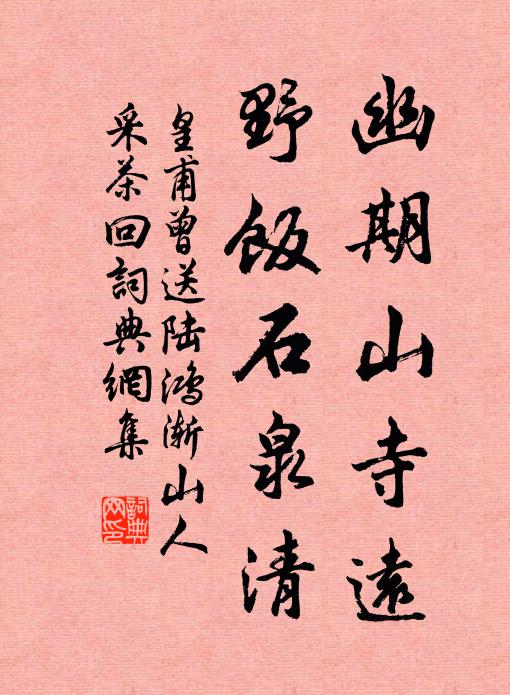 幽期山寺遠
野飯石泉清
皇甫曾送陆鴻漸山人
采茶回詞典網集
詞典
网印